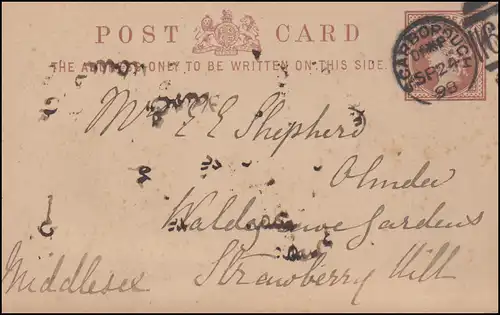 POST CARD
THE ADDRESS ONLY TO BE WRITTEN ON THIS SIDE.
SCARBOROUGH
SP 24
99
E E Shepherd
Olmder
Waldegrave Gardens
Strawberry Hill
Middlesex